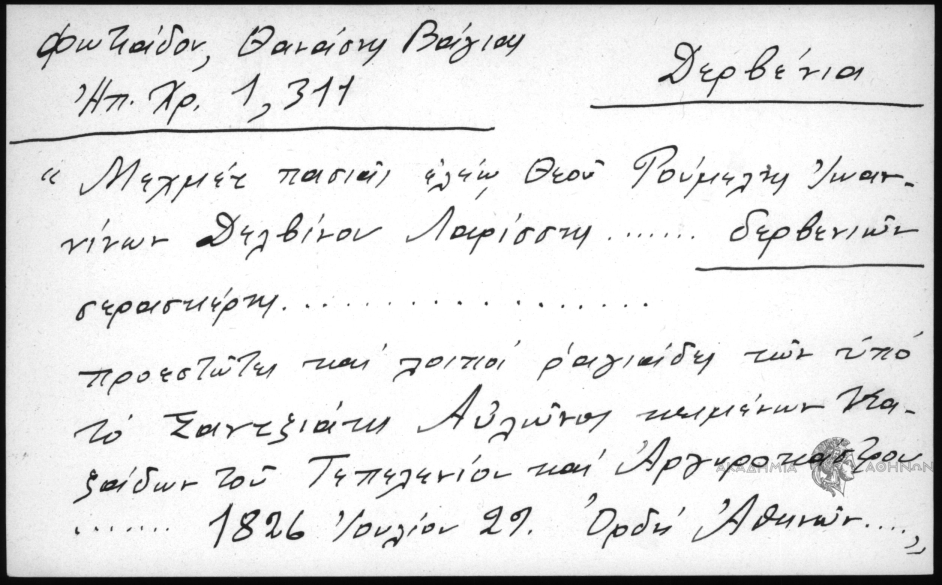 Φωτιάδου, Θανάσης Βάγιας
Ἠπ. Χρ. 1, 311
Δερβένια
“ Μεχμέτ πασιᾶς ἐλέῳ Θεοῦ Ρούμελης Ἰωαν-
νίνων Δελβίνου Λαρίσσης ....... δερβενιῶν
σερασκέρης..................
προεστῶτες καί λοιποί ραγιάδες τῶν ὑπό
τό Σαντζιάκι Αὐλῶνος κειμένων Κα-
ζάδων τοῦ Τεπελενίου καί Ἀργυροκάστρου
....... 1826 Ἰουλίου 27. Ὀρδί Ἀθηνῶν.....„
ΑΚΑΔΗΜΙΑ ΑΘΗΝΩΝ